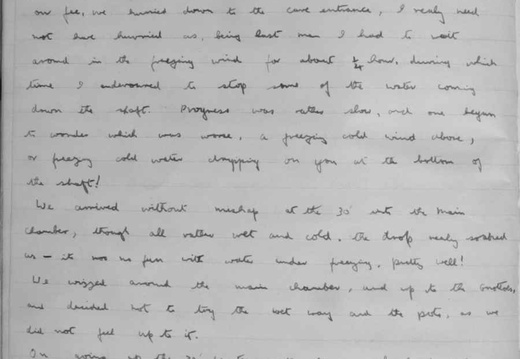 our fee, we hurried down to the cave entrance, I really need
not have hurried as, being last man I had to wait
around in the freezing wind for about ¼ hour, during which
time I endeavoured to stop some of the water coming
down the shaft. Progress was rather slow, and one began
to wonder which was worse, a freezing cold wind above,
or freezing cold water dripping on you at the bottom of
the shaft!
We arrived without mishap at the 30' into the main
chamber, though all rather wet and cold. the drop really soaked
us – it was no fun with water under freezing, pretty well!
We wizzed around the main chamber, and up to the grottoes,
and decided not to try the wet way and the pots, as we
did not feel up to it.
On going up the 30'